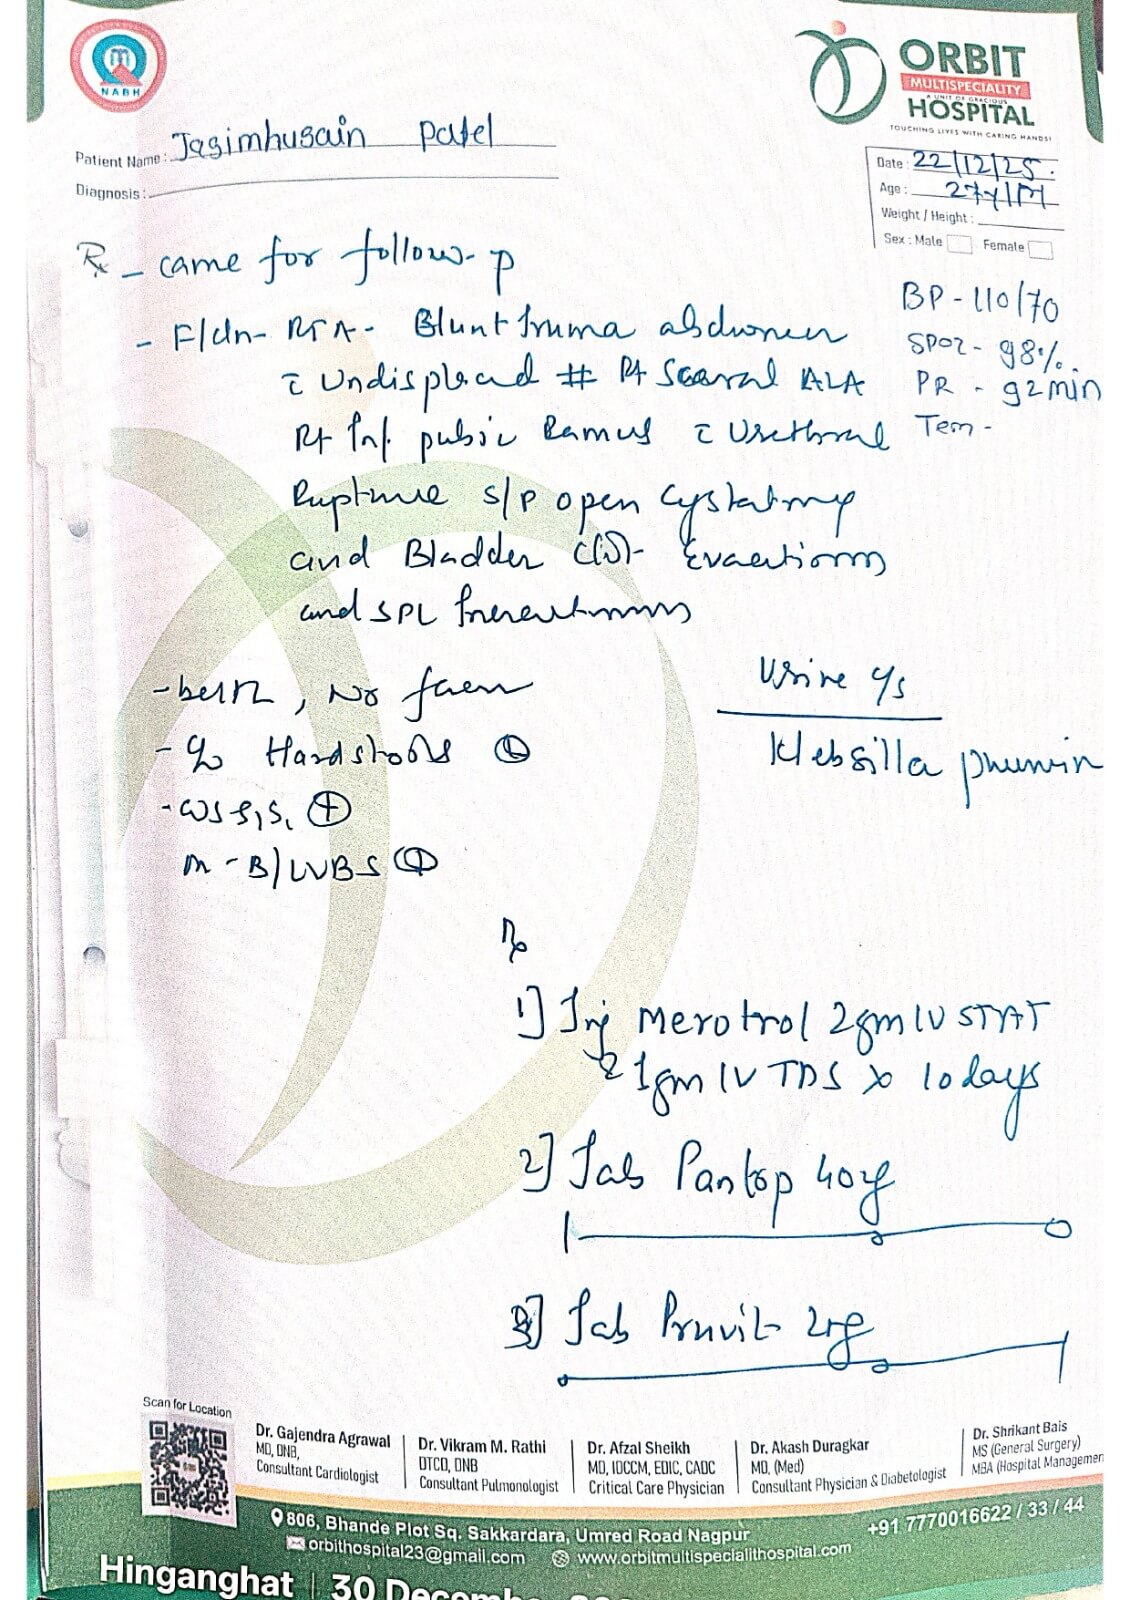 NABH
ORBIT
MULTISPECIALITY
A UNIT OF GRACIOUS
HOSPITAL
TOUCHING LIVES WITH CARING HANDS!
Patient Name: Jasimhusain Patel
Diagnosis:
Date: 22/12/25.
Age: 27y/M
Weight / Height:
Sex: Male Female
Rx - came for follow-p
BP - 110/70
SPO2 - 98%.
PR - 92min
Tem -
- RTA - Blunt truma abdomen
c Undisplacd # Rt Sacral ALA
Rt Inf pubic Ramus c Urethral
Rupture s/p open cystotomy
and Bladder clot
and
- No
- c/o Hardstools
- S1S2 ⊕
Urine c/s
Klebsilla
1] Inj Merotrol 2gm IV STAT
& 1gm IV TDS x 10 days
2] Tab Pantop 40
3] Tab
Scan for Location
Dr. Gajendra Agrawal
MD, DNB,
Consultant Cardiologist
Dr. Vikram M. Rathi
DTCD, DNB
Consultant Pulmonologist
Dr. Afzal Sheikh
MD, IDCCM, EDIC, CADC
Critical Care Physician
Dr. Akash Duragkar
MD, (Med)
Consultant Physician & Diabetologist
Dr. Shrikant Bais
MS (General Surgery)
MBA (Hospital Managemen
806, Bhande Plot Sq. Sakkardara, Umred Road Nagpur
+91 7770016622 / 33 / 44
orbithospital23@gmail.com www.orbitmultispecialithospital.com
Hinganghat | 30 Decemb